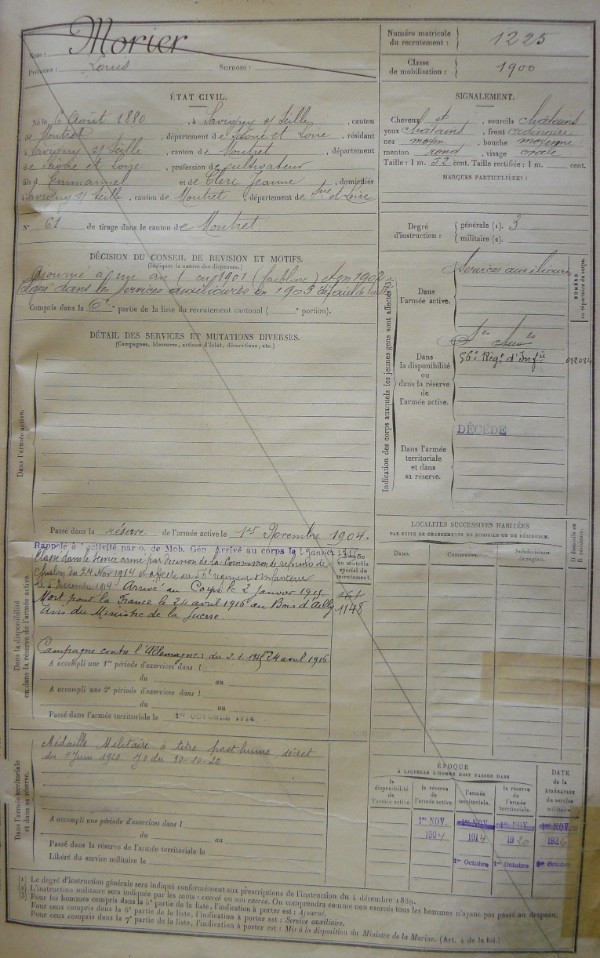 Nom : Morier
Prénoms : Louis Surnoms :
Numéro matricule du recrutement : 1225
Classe de mobilisation : 1900
ÉTAT CIVIL.
Né le 6 Août 1880, à Savigny s/ Seille, canton
de Montret, département de Saône et Loire, résidant
à Savigny s/ Seille, canton de Montret, département
de Saône et Loire, profession de cultivateur
fils d'Emmanuel et de Clerc Jeanne, domiciliés
à Savigny s/ Seille, canton de Montret, département de Sne et Loire
N° 61 de tirage dans le canton de Montret
SIGNALEMENT.
Cheveux et sourcils châtains
yeux châtains, front ordinaire
nez moyen, bouche moyenne
menton rond, visage ovale
Taille : 1 m. cent. Taille rectifiée : 1 m. cent.
MARQUES PARTICULIÈRES :
Degré d'instruction : générale (1). 3
militaire (2).
DÉCISION DU CONSEIL DE RÉVISION ET MOTIFS.
Ajourné à un an en 1901 (faiblesse) et en 1902
Classé dans les services auxiliaires en 1903
Compris dans la 6e partie de la liste du recrutement cantonal ( portion).
DÉTAIL DES SERVICES ET MUTATIONS DIVERSES.
(Campagnes, blessures, actions d'éclat, décorations, etc.)
Indication des corps auxquels les jeunes gens sont affectés
Dans l'armée active.
Services auxiliaires
Dans la disponibilité ou dans la réserve de l'armée active.
56e Régt d'Infie
Dans l'armée territoriale et dans sa réserve.
DÉCÉDÉ
Dans l'armée active.
Passé dans la réserve de l'armée active le 1er Novembre 1904.
LOCALITÉS SUCCESSIVES HABITÉES
PAR SUITE DE CHANGEMENTS DE DOMICILE OU DE RÉSIDENCE.
Dates. Communes. Subdivisions de région. D domicile ou R résidence.
Dans la disponibilité ou dans la réserve de l'armée active.
Rappelé à l'activité par o. de Mob. Gén. Arrivé au corps le 2 Janvier 1915
Classé dans le service armé par décision de la Commission de réforme de
Chalon du 24 Nov 1914 et affecté au régiment d'Infanterie
Arrivé au Corps le 2 janvier 1915
Mort pour la France le 24 avril 1916 au Bois d'Ailly
Avis du Ministre de la Guerre
1148
Campagne contre l'Allemagne : du 2.1.1915 24 avril 1916
A accompli une 1re période d'exercices dans l
du au
A accompli une 2e période d'exercices dans l
du au
Passé dans l'armée territoriale le 1er OCTOBRE 1914
Dans l'armée territoriale et dans sa réserve.
Médaille Militaire à titre posthume décret
du Juin 1920 JO du 30-10-20
A accompli une période d'exercices dans l
du au
Passé dans la réserve de l'armée territoriale le
Libéré du service militaire le
ÉPOQUE
À LAQUELLE L'HOMME DOIT PASSER DANS
la disponibilité de l'armée active. la réserve de l'armée active. l'armée territoriale. la réserve de l'armée territoriale. DATE de la LIBÉRATION du service militaire.
1er NOV. 1er NOV. 1er NOV. 1er NOV.
1904 1914 1920 1926
1er Octobre 1er Octobre 1er Octobre
Le degré d'instruction générale sera indiqué conformément aux prescriptions de l'instruction du 4 décembre 1889.
L'instruction militaire sera indiquée par les mots : exercé ou non exercé. On comprendra comme non exercés tous les hommes n'ayant pas passé au drapeau.
Pour les hommes compris dans la 5e partie de la liste, l'indication à porter est : Ajourné.
Pour ceux compris dans la 6e partie de la liste, l'indication à porter est : Service auxiliaire.
Pour ceux compris dans la 7e partie de la liste, l'indication à porter est : Mis à la disposition du Ministre de la Marine. (Art. 4 de la loi.)